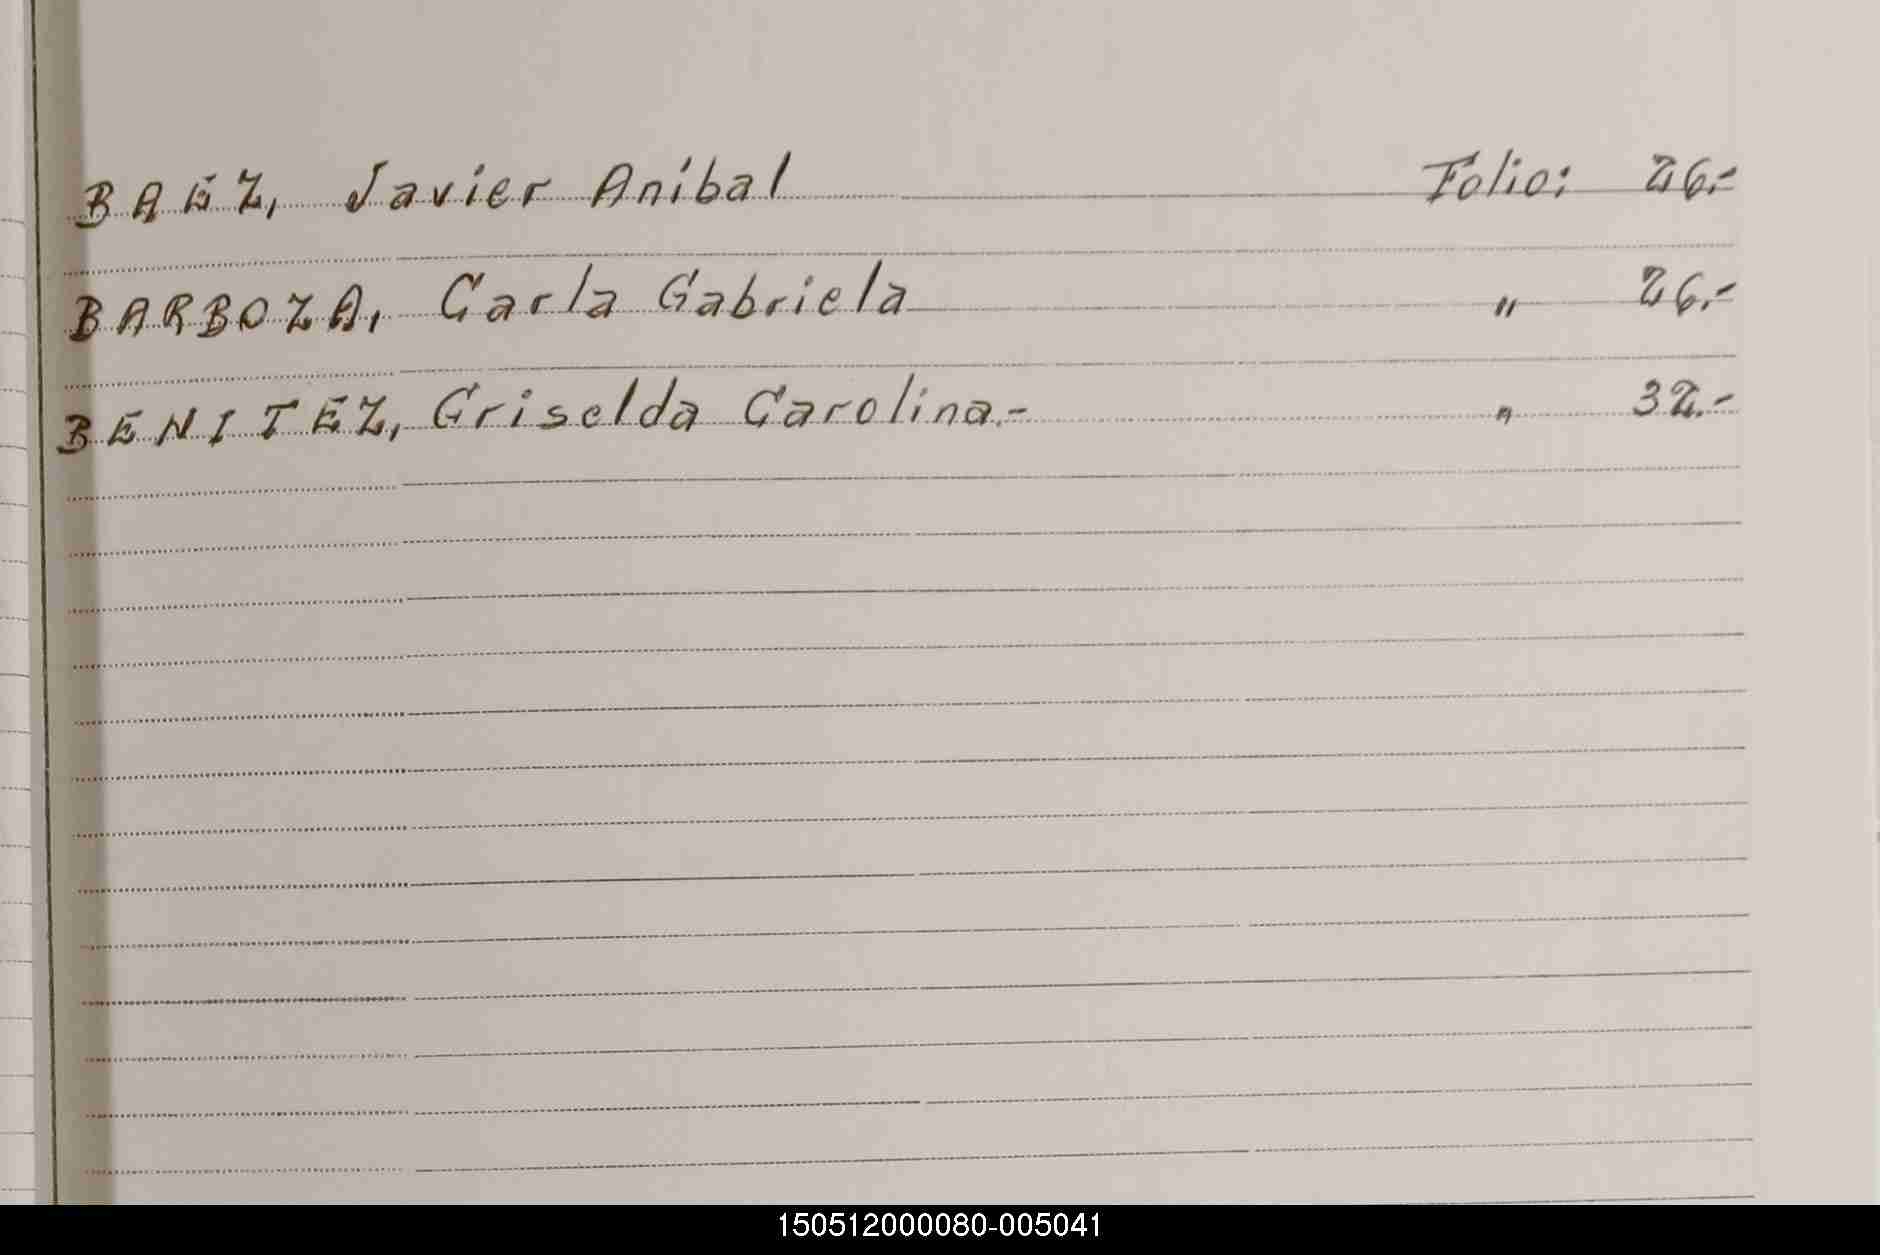 BAEZ, Javier Anibal Folio: 26.-
BARBOZA, Carla Gabriela " 26.-
BENITEZ, Griselda Carolina.- " 32.-
150512000080-005041